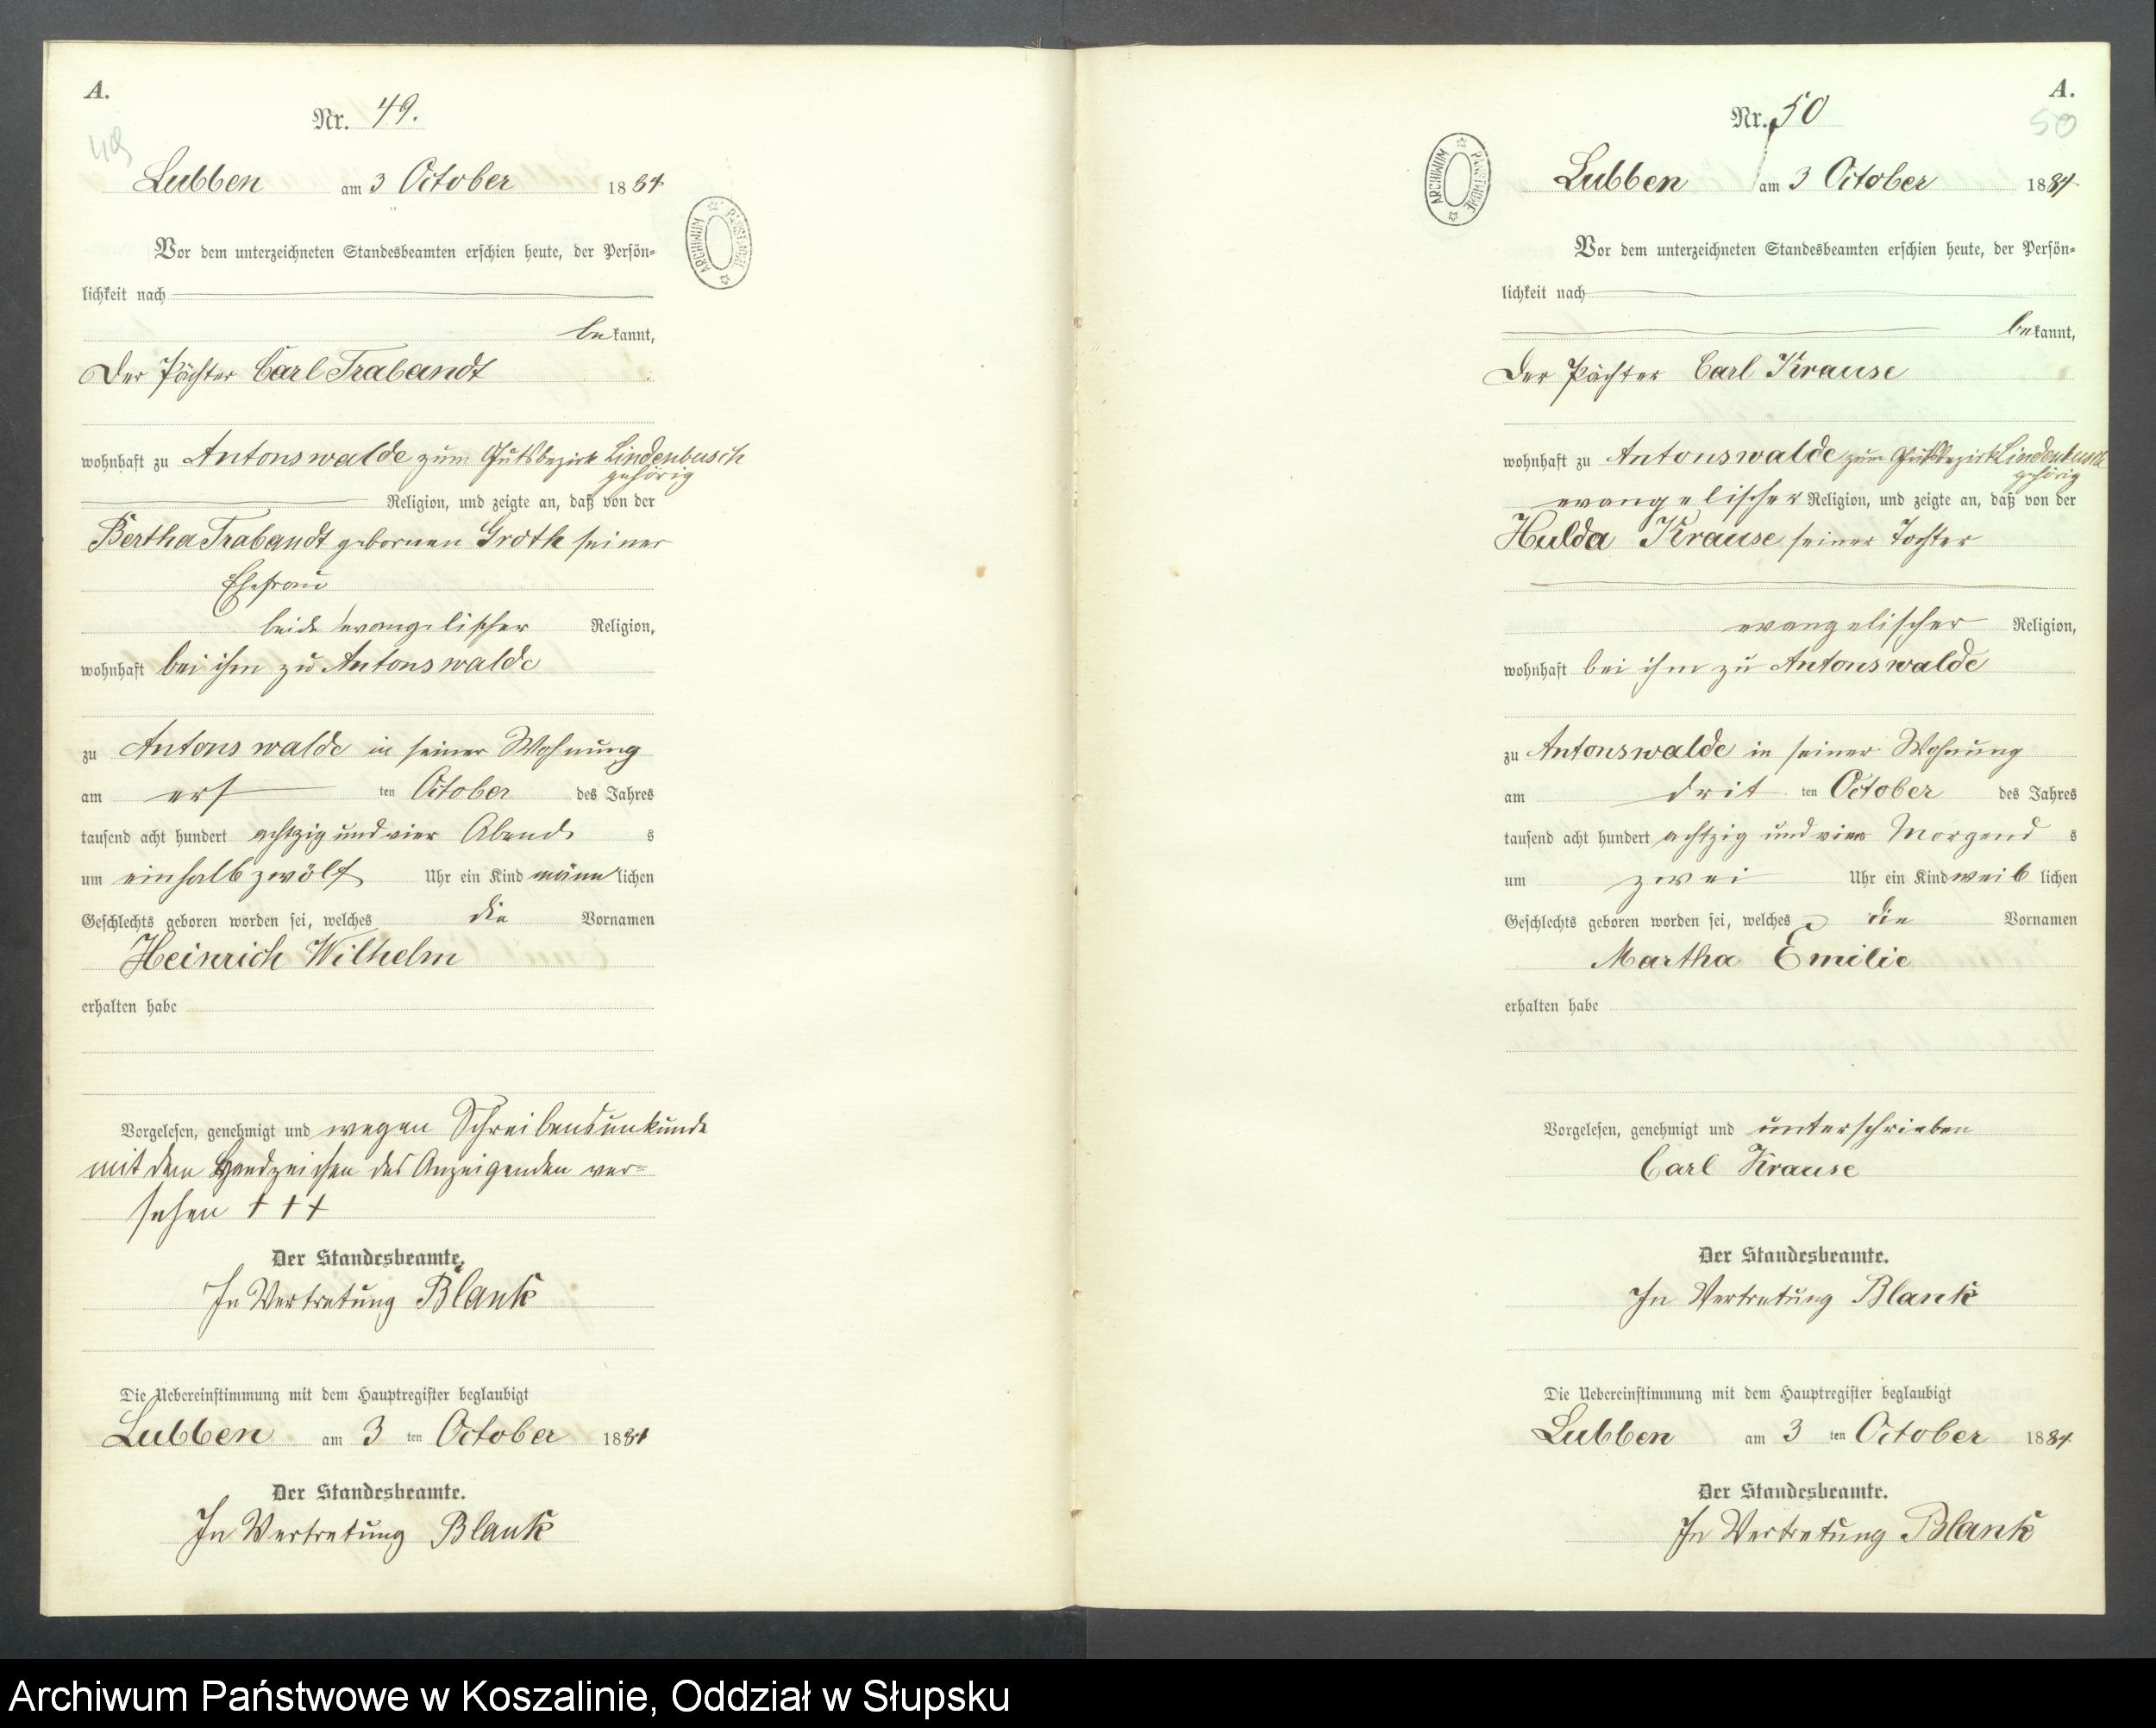 A.
Nr. 49.
49
Lubben am 3 October 1884
ARCHIWUM PAŃSTWOWE
Vor dem unterzeichneten Standesbeamten erschien heute, der Persön-
lichkeit nach
bekannt,
Der Pächter Carl Trabandt
wohnhaft zu Antonswalde zum Gutsbezirk Lindenbusch
gehörig
Religion, und zeigte an, daß von der
Bertha Trabandt gebornen Groth seiner
Ehefrau
beide evangelischer Religion,
wohnhaft bei ihm zu Antonswalde
zu Antonswalde in seiner Wohnung
am erst ten October des Jahres
tausend acht hundert achtzig und vier Abends
um einhalb zwölf Uhr ein Kind männlichen
Geschlechts geboren worden sei, welches die Vornamen
Heinrich Wilhelm
erhalten habe
Vorgelesen, genehmigt und wegen Schreibensunkunde
mit dem Handzeichen des Anzeigenden ver-
sehen + + +
Der Standesbeamte.
In Vertretung Blank
Die Uebereinstimmung mit dem Hauptregister beglaubigt
Lubben am 3 ten October 1884
Der Standesbeamte.
In Vertretung Blank
A.
Nr. 50
50
Lubben am 3 October 1884
ARCHIWUM PAŃSTWOWE
Vor dem unterzeichneten Standesbeamten erschien heute, der Persön-
lichkeit nach
bekannt,
Der Pächter Carl Krause
wohnhaft zu Antonswalde zum Gutsbezirk Lindenbusch
gehörig
evangelischer Religion, und zeigte an, daß von der
Hulda Krause seiner Tochter
evangelischer Religion,
wohnhaft bei ihm zu Antonswalde
zu Antonswalde in seiner Wohnung
am drit ten October des Jahres
tausend acht hundert achtzig und vier Morgends
um zwei Uhr ein Kind weiblichen
Geschlechts geboren worden sei, welches die Vornamen
Martha Emilie
erhalten habe
Vorgelesen, genehmigt und unterschrieben
Carl Krause
Der Standesbeamte.
In Vertretung Blank
Die Uebereinstimmung mit dem Hauptregister beglaubigt
Lubben am 3 ten October 1884
Der Standesbeamte.
In Vertretung Blank
Archiwum Państwowe w Koszalinie, Oddział w Słupsku